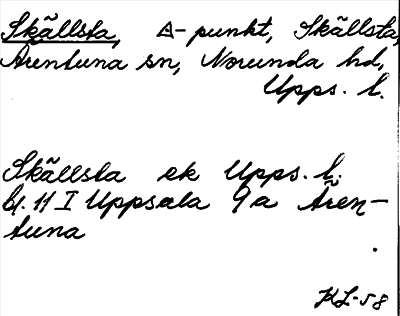 Skällsta, △-punkt, Skällsta,
Ärentuna sn, Norunda hd,
Upps. l.
Skällsta ek Upps. l.
bl. 11 I Uppsala 9a Ären-
tuna
KL-58